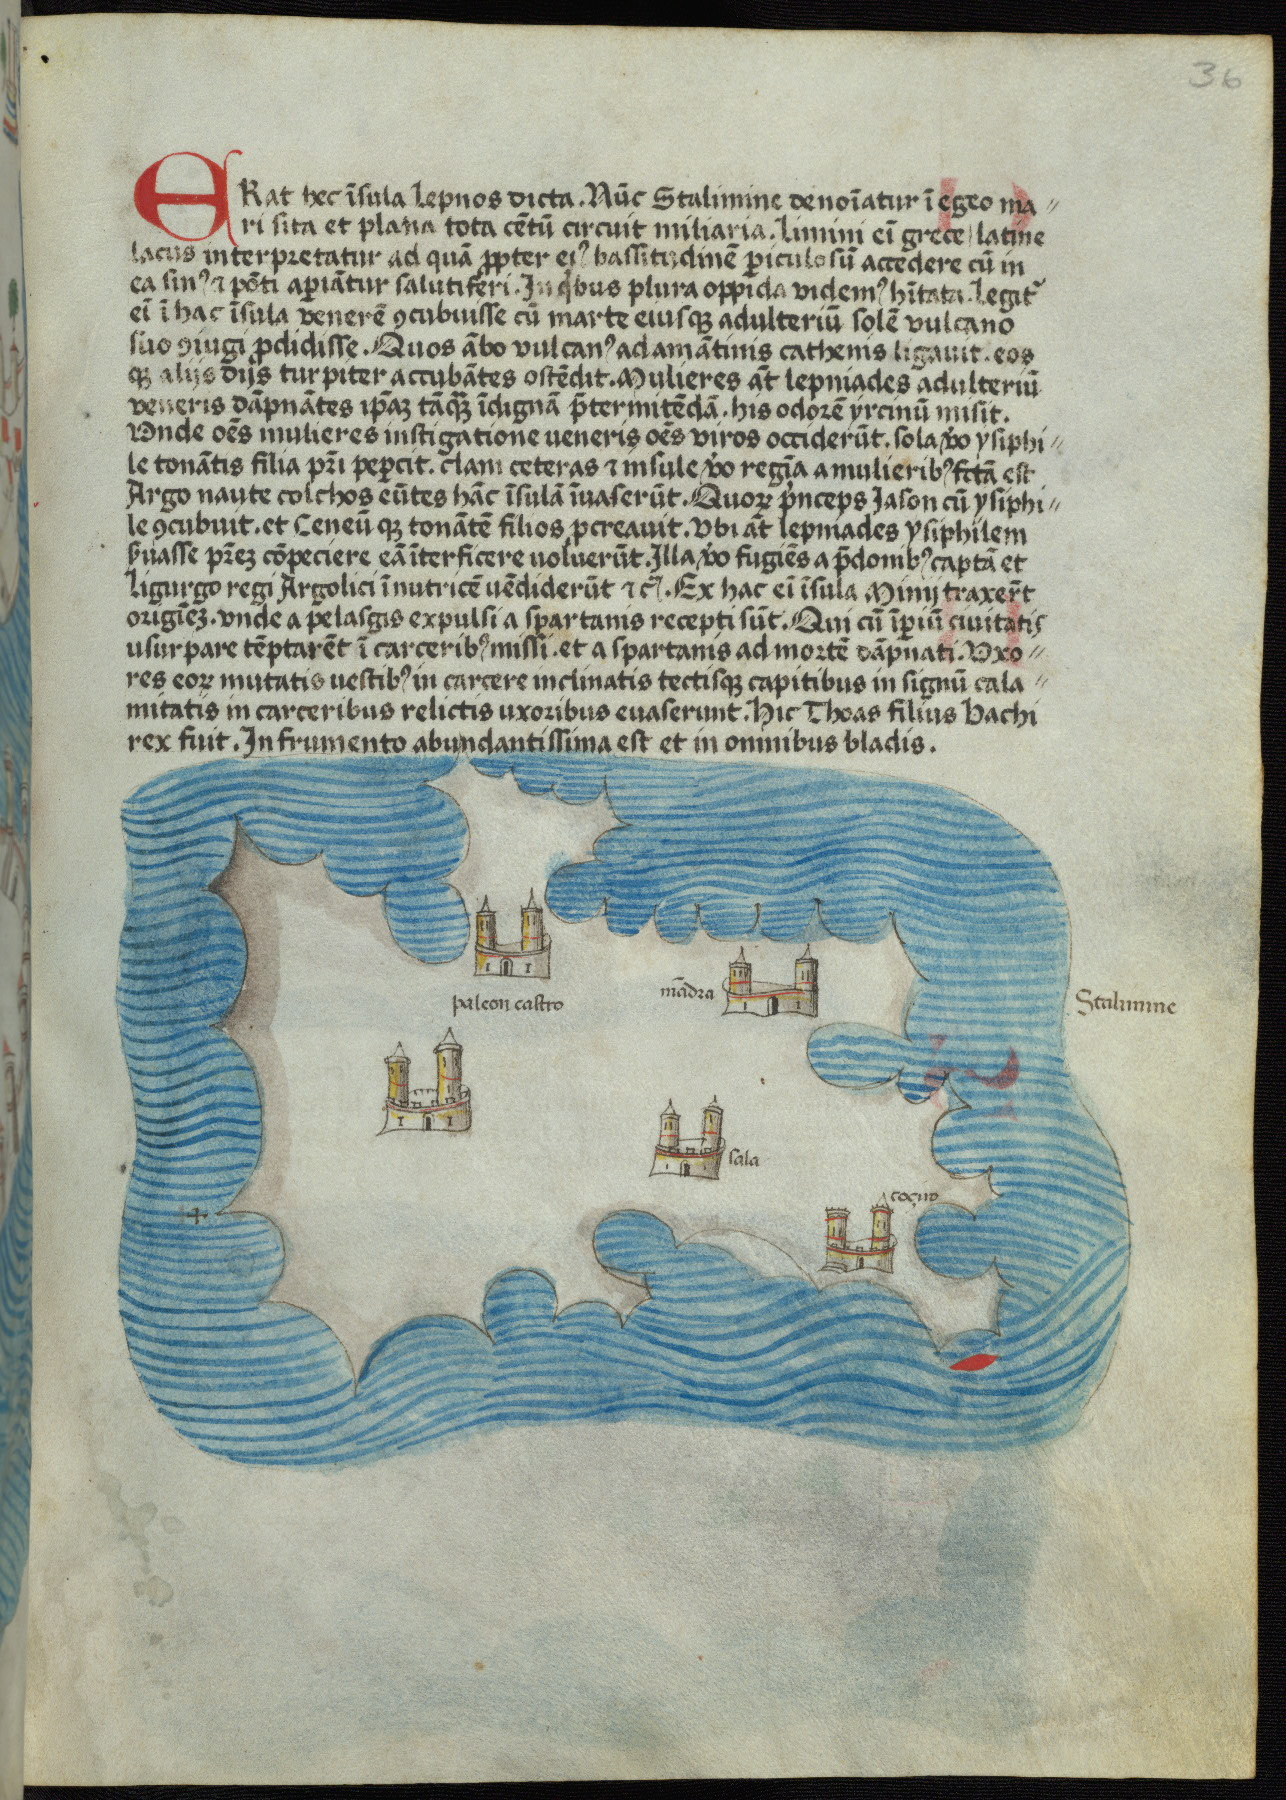 36
ERat hec īsula Lepnos dicta. Nūc Stalimine denoīatur ī egeo ma〃
ri sita et plana tota cētū circuit miliaria. Limini eī grece latine
lacus interpretatur ad quā ꝓpter eiꝰ bassitudinē ꝑiculosū accedere cū in
ea sinꝰ ⁊ pōti aꝑiātur salutiferi. In qͥbus plura oppida videmꝰ hītata. Legit᷑
eī ī hac īsula venerē ꝯcubuisse cū marte eiusqꝫ adulteriū solē vulcano
suo ꝯiugi ꝓdidisse. Quos ābo vulcanꝰ adamātinis cathenis ligauit. eos
qꝫ alijs dijs turpiter accubātes ostēdit. Mulieres āt lepniades adulteriū
veneris dāpnātes ip̄aꝫ tāqꝫ̄ īdignā p̄termitēdā. his odorē yrcinū misit.
Vnde oēs mulieres instigatione ueneris oēs viros occiderūt. sola v̊o ysiphi〃
le tonātis filia pr̄i peꝑcit. clam ceteras ⁊ insule v̊o regīa a mulieribꝰ fctā est
Argo naute colchos eūtes hāc īsulā īuaserūt. Quoꝝ pͥnceps Jason cū ysiphi〃
le ꝯcubuit. et Ceneū qꝫ tonātē filios ꝓcreauit. Vbi āt lepniades ysiphilem
s̄uasse pr̄eꝫ cōpeciere eā īterficere uoluerūt. Illa v̊o fugiēs a p̄donibꝰ captā et
Ligurgo regi Argolici ī nutricē uēdiderūt ⁊ cͣ. Ex hac eī īsula Minij traxer̄t
origīeꝫ. vnde a pelasgis expulsi a spartanis recepti sūt. Qui cū īꝑiū ciuitatis
usurpare tēptarēt ī carceribꝰ missi. et a spartanis ad mortē dāpnati. Vxo〃
res eoꝝ mutatis uestibꝰ in carcere inclinatis tectisqꝫ capitibus in signū cala〃
mitatis in carceribus relictis uxoribus euaserunt. Hic Thoas filius bachi
rex fuit. In frumento abundantissima est et in omnibus bladis.
paleon castro
mādra
Stalimine
sala
coçino